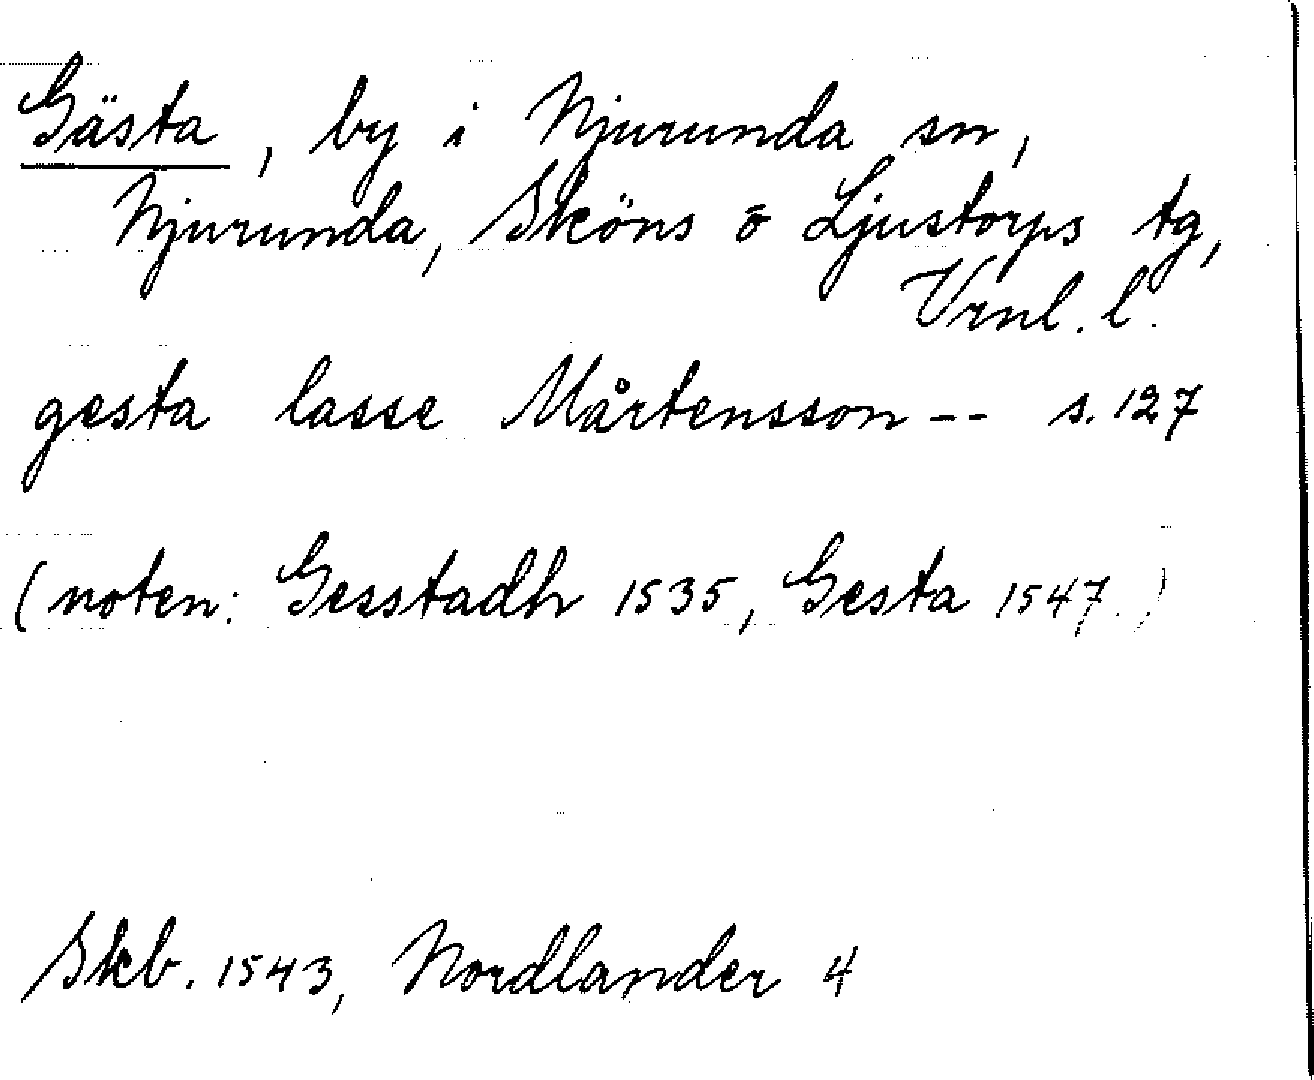 Gästa, by i Njurunda sn,
Njurunda, Sköns o Ljustorps tg,
Vrnl. l.
gesta lasse Mårtensson -- s. 127
(noten: Gesstadh 1535, Gesta 1547.)
Skb. 1543, Nordlander 4